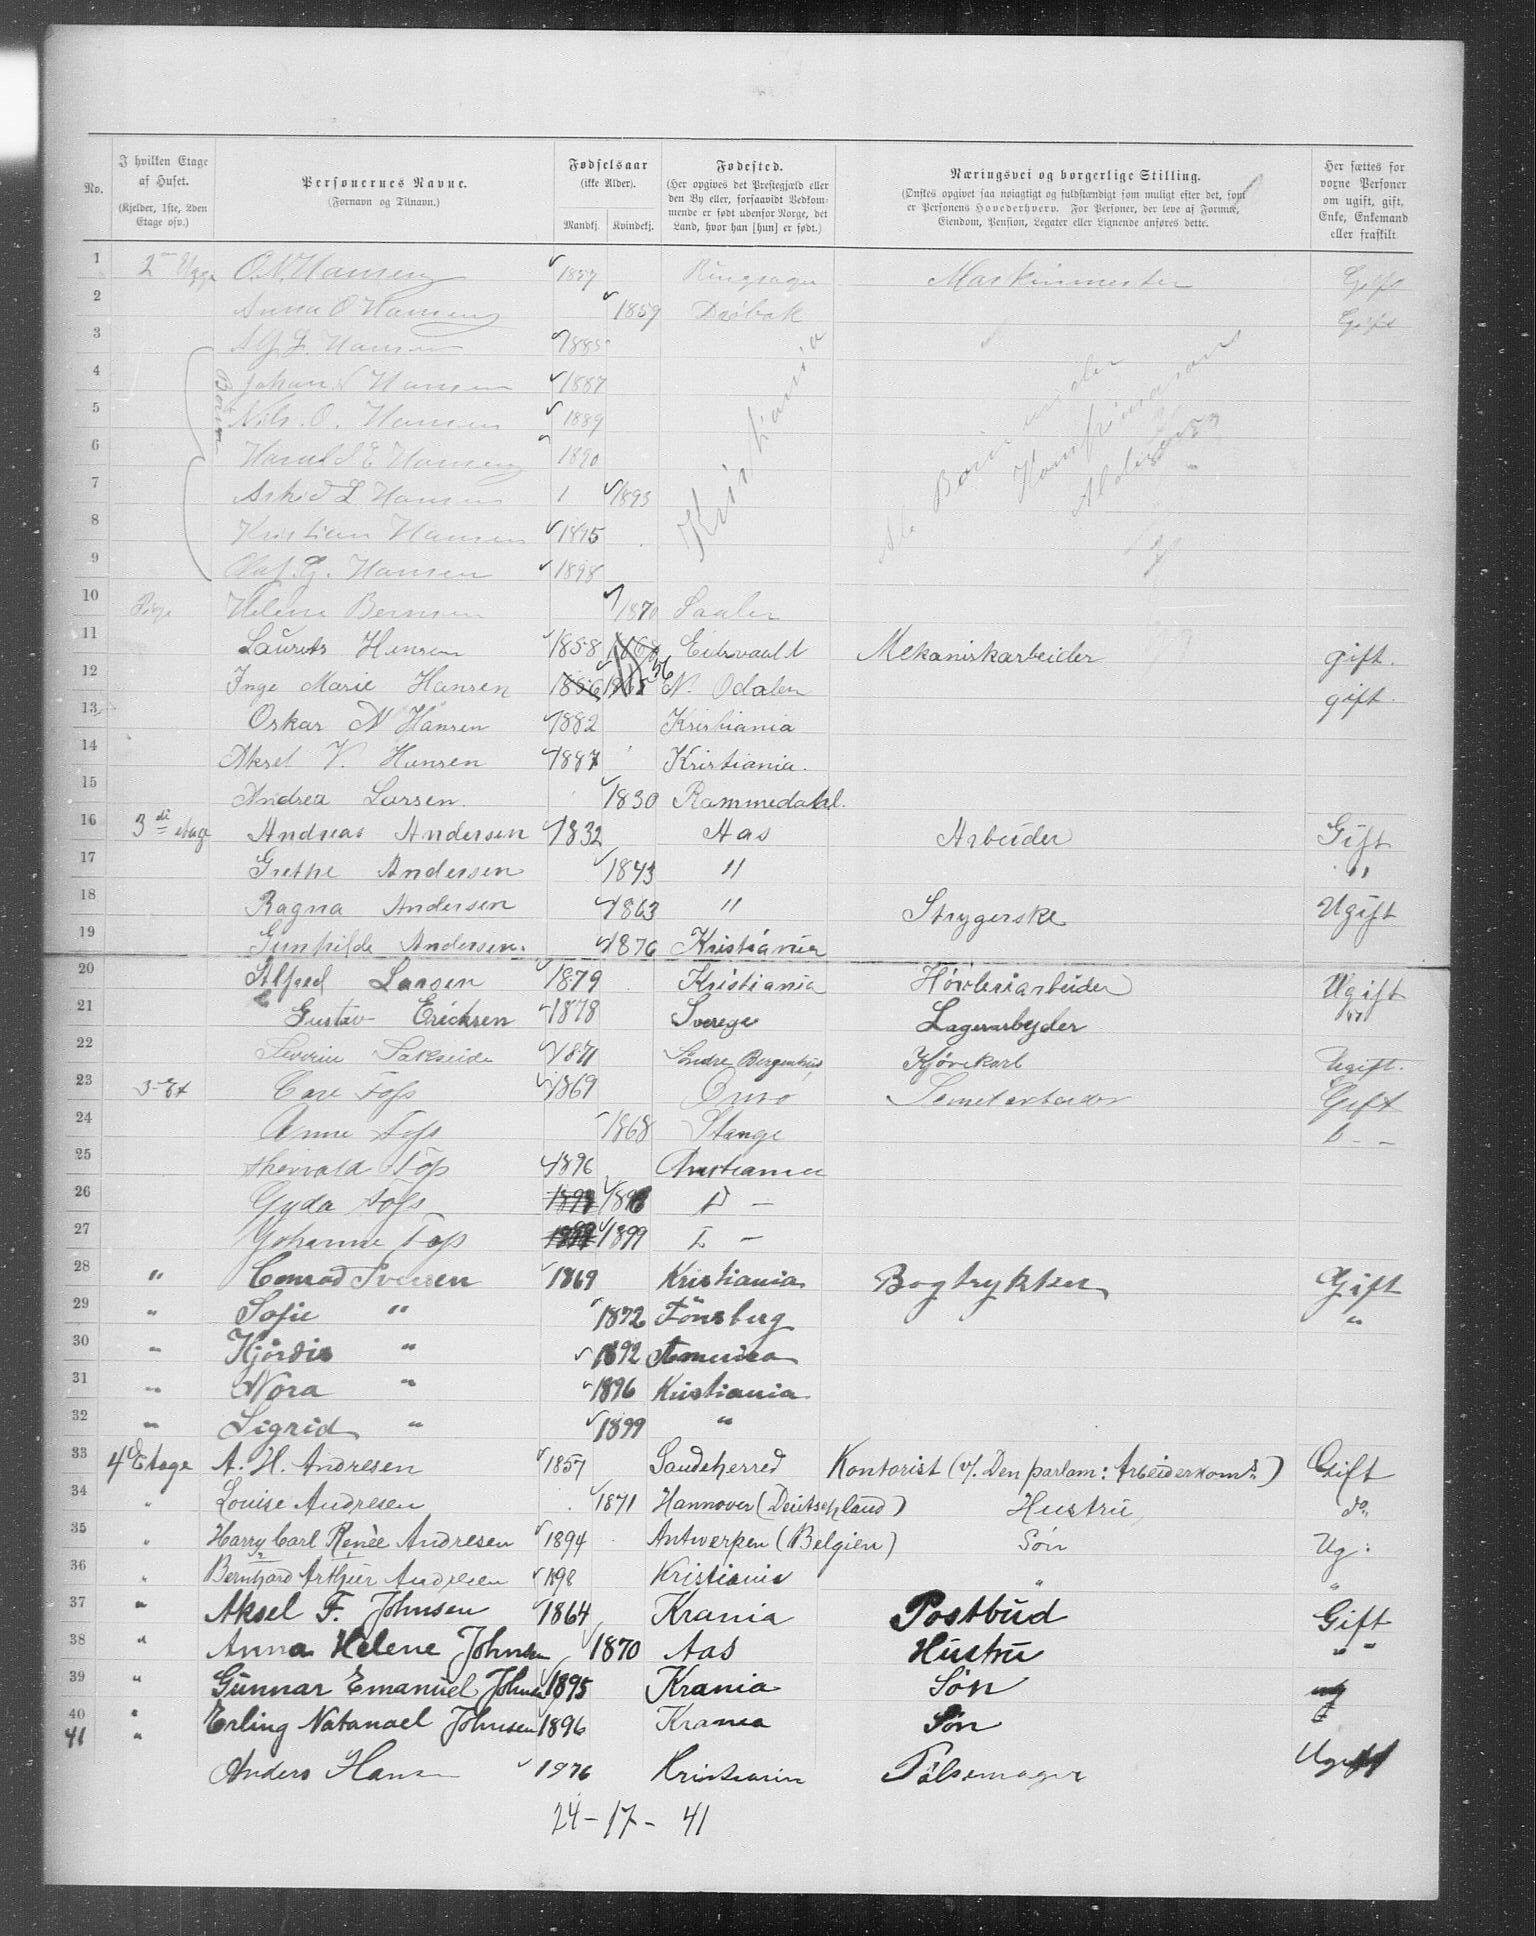 No.
I hvilken Etage af Huset.
(Kjelder, 1ste, 2den Etage osv.)
Personernes Navne.
(Fornavn og Tilnavn.)
Fødselsaar
(ikke Alder).
Mandkj.
Kvindekj.
Fødested.
(Her opgives det Prestegjæld eller den By eller, forsaavidt Vedkommende er født udenfor Norge, det Land, hvor han [hun] er født.)
Næringsvei og borgerlige Stilling.
(Ønskes opgivet saa nøiagtigt og fuldstændigt som muligt efter det, som er Personens Hovederhverv. For Personer, der leve af Formue, Eiendom, Pension, Legater eller Lignende anføres dette.
Her sættes for voxne Personer om ugift, gift, Enke, Enkemand eller fraskilt
1 O N Hansen 1857 Ringsager Maskinmester Gift
2 Anna O Hansen 1859 Drøbak Gift
3 Hansen 1885
4 Johan N Hansen 1887
5 Nils. O. Hansen 1889
6 Harald E Hansen 1890
7 L Hansen 1893
8 Kristian Hansen 1895
9 Olaf. G. Hansen 1898
Børn
Kristiania
10 Pige Helene 1870
11 Laurits Hansen 1858 Eidsvauld Mekaniskarbeider gift.
12 Inge Marie Hansen 1856 56 N. Odalen gift.
13 Oskar N Hansen 1882 Kristiania
14 Aksel V. Hansen 1887 Kristiania.
15 Andrea Larsen. 1830 Rammedahl.
16 3de etage Andreas Andersen 1832 Aas Arbeider Gift
17 Grethe Andersen 1843 " "
18 Ragna Andersen 1863 " Strygerske Ugift
19 Gunhilde Andersen. 1876 Kristiania
20 Alfred Larsen 1879 Kristiania Høvleriarbeider Ugift
21 Gustav Ericksen 1878 Sverege Lagerarbejder "
22 1871 Søndre Bergenhus Kjørekarl Ugift.
23 3-Et Carl Foss 1869 Gift
24 Anne Foss 1868 Stange D - -
25 Thorvald Foss 1896 Christiania
26 Gyda Foss D -
27 Johanne Foss 1899 D -
28 " Conrad Iversen 1869 Kristiania Bogtrykker Gift
29 " Sofie " 1872 Tønsberg "
30 " Hjørdis " 1892 America
31 " Nora " 1896 Kristiania
32 " Sigrid " 1899 "
33 4 Etage A. H. Andresen 1857 Saudeherred Kontorist (v/. Den parlam: Arbeiderkoms.) Gift
34 " Louise Andresen 1871 Hannover (Deutschland) Hustru do.
35 " Harry Carl Renèe Andresen 1894 Antwerpen (Belgien) Søn Ug:
36 " Bernhard Arthur Andresen 1898 Kristiania " "
37 " Aksel F. Johnsen 1864 Krania Postbud Gift
38 " Anna Helene Johnsen 1870 Aas Hustru " "
39 " Gunnar Emanuel Johnsen 1895 Krania Søn ug
40 " Erling Natanael Johnsen 1896 Krania Søn "
41 " Anders Hansen 1976 Kristiania Pølsemager Ugift
24 - 17 - 41